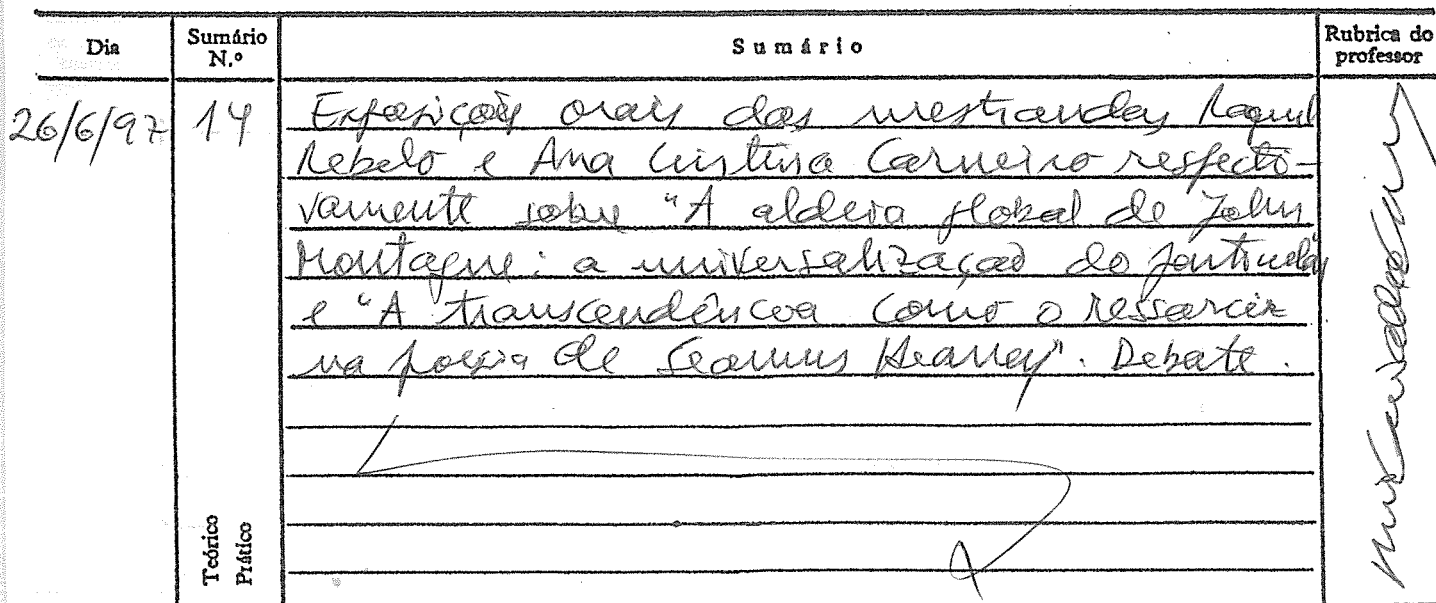 Dia
Sumário N.º
Sumário
Rubrica do professor
26/6/97
14
Exposições orais das mestrandas Raquel
Rebelo e Ana Cristina Carneiro respecti-
vamente sobre "A aldeia global de John
Montague: a universalização do particular"
e "A transcendência como o ressarcir
na poesia de Seamus Heaney". Debate.
Teórico
Prático